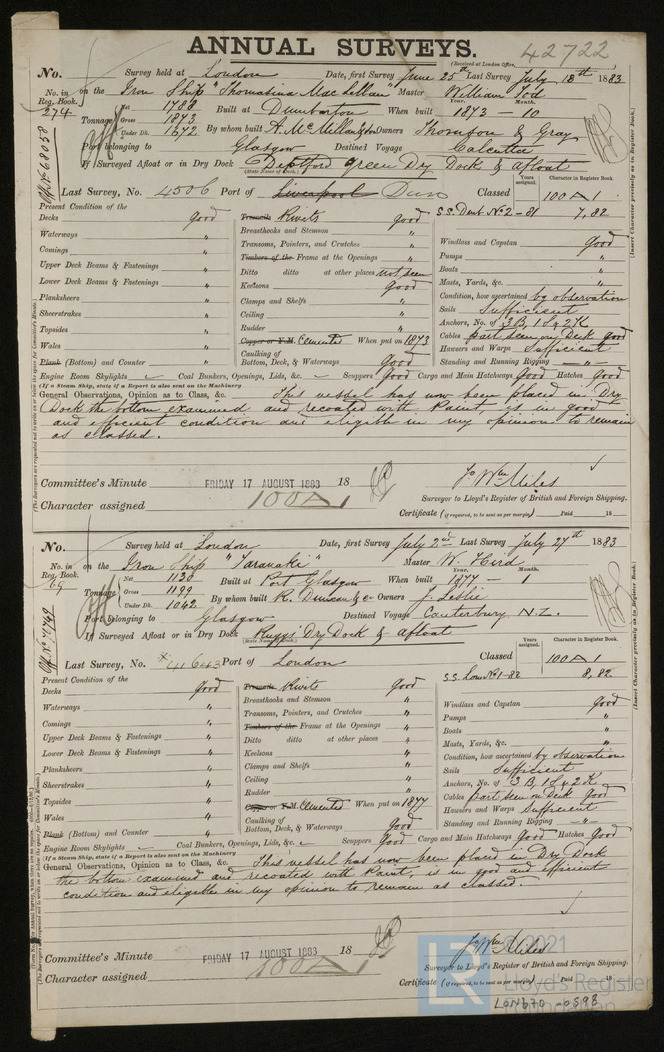 ANNUAL SURVEYS.
(Received at London Office,
42722
No. Survey held at London Date, first Survey June 25th Last Survey July 18th 1883
No. in Reg. Book. 274 on the Iron Ship "Thomasina MacLellan" Master William Tod
Tonnage Net 1788 Built at Dumbarton When built Year. 1873 - Month. 10
Gross 1873
Under Dk. 1672 By whom built A. McMillan & Son Owners Thomson & Gray
Port belonging to Glasgow Destined Voyage Calcutta
If Surveyed Afloat or in Dry Dock Deptford Green Dry Dock & Afloat
(State Name of Dock.)
Off. No. 68058
Last Survey, No. 4506 Port of Liverpool Dun Classed Years assigned. Character in Register Book. 100A1
S.S. Dun. No 2 - 81 7,82
(Insert Character precisely as in Register Book.)
Present Condition of the
Decks good
Waterways "
Comings "
Upper Deck Beams & Fastenings "
Lower Deck Beams & Fastenings "
Planksheers "
Sheerstrakes "
Topsides "
Wales "
Plank (Bottom) and Counter "
Treenails Rivets good
Breasthooks and Stemson "
Transoms, Pointers, and Crutches "
Timbers of the Frame at the Openings "
Ditto ditto at other places not seen
Keelsons good
Clamps and Shelfs "
Ceiling "
Rudder "
Copper or Y.M. Cemented When put on 1873
Caulking of Bottom, Deck, & Waterways Good
Windlass and Capstan good
Pumps "
Boats "
Masts, Yards, &c. "
Condition, how ascertained by observation
Sails Sufficient
Anchors, No. of 3B, 1S, & 2K
Cables part seen on Deck good
Hawsers and Warps Sufficient
Standing and Running Rigging "
Engine Room Skylights Coal Bunkers, Openings, Lids, &c. Scuppers Good Cargo and Main Hatchways Good Hatches Good
(If a Steam Ship, state if a Report is also sent on the Machinery
General Observations, Opinion as to Class, &c. This vessel has now been placed in Dry
Dock the bottom examined and recoated with Paint, is in good
and efficient condition and eligible in my opinion to remain
as classed.
Committee's Minute FRIDAY 17 AUGUST 1883 18
Character assigned 100A1
Jo Wm Miles
Surveyor to Lloyd's Register of British and Foreign Shipping.
Certificate (if required, to be sent as per margin) Paid 18
No. Survey held at London Date, first Survey July 2nd Last Survey July 27th 1883
No. in Reg. Book. 69 on the Iron Ship "Taranaki" Master W. Hird
Tonnage Net 1126 Built at Port Glasgow When built Year. 1877 - Month. 1
Gross 1199
Under Dk. 1042 By whom built R. Duncan & Co Owners J. Leslie
Port belonging to Glasgow Destined Voyage Canterbury N.Z.
If Surveyed Afloat or in Dry Dock Rugg's Dry Dock & Afloat
(State Name of Dock.)
Last Survey, No. 41643 Port of London Classed Years assigned. Character in Register Book. 100A1
S.S. Lon. No 1-82 8,82
(Insert Character precisely as in Register Book.)
Present Condition of the
Decks Good
Waterways "
Comings "
Upper Deck Beams & Fastenings "
Lower Deck Beams & Fastenings "
Planksheers "
Sheerstrakes "
Topsides "
Wales "
Plank (Bottom) and Counter "
Treenails Rivets Good
Breasthooks and Stemson "
Transoms, Pointers, and Crutches "
Timbers of the Frame at the Openings "
Ditto ditto at other places "
Keelsons "
Clamps and Shelfs "
Ceiling "
Rudder "
Copper or Y.M. Cemented When put on 1877
Caulking of Bottom, Deck, & Waterways Good
Windlass and Capstan good
Pumps "
Boats "
Masts, Yards, &c. "
Condition, how ascertained by observation
Sails Sufficient
Anchors, No. of 3B, 1S, & 2K
Cables part seen on Deck Good
Hawsers and Warps Sufficient
Standing and Running Rigging "
Engine Room Skylights Coal Bunkers, Openings, Lids, &c. Scuppers Good Cargo and Main Hatchways Good Hatches Good
(If a Steam Ship, state if a Report is also sent on the Machinery
General Observations, Opinion as to Class, &c. This vessel has now been placed in Dry Dock
the bottom examined and recoated with Paint, is in good and efficient
condition and eligible in my opinion to remain as classed.
Committee's Minute FRIDAY 17 AUGUST 1883 18
Character assigned 100A1
Jo Wm Miles
Surveyor to Lloyd's Register of British and Foreign Shipping.
Certificate (if required, to be sent as per margin) Paid 18
LR © 2021
Lloyd's Register
Foundation
LON670-0598